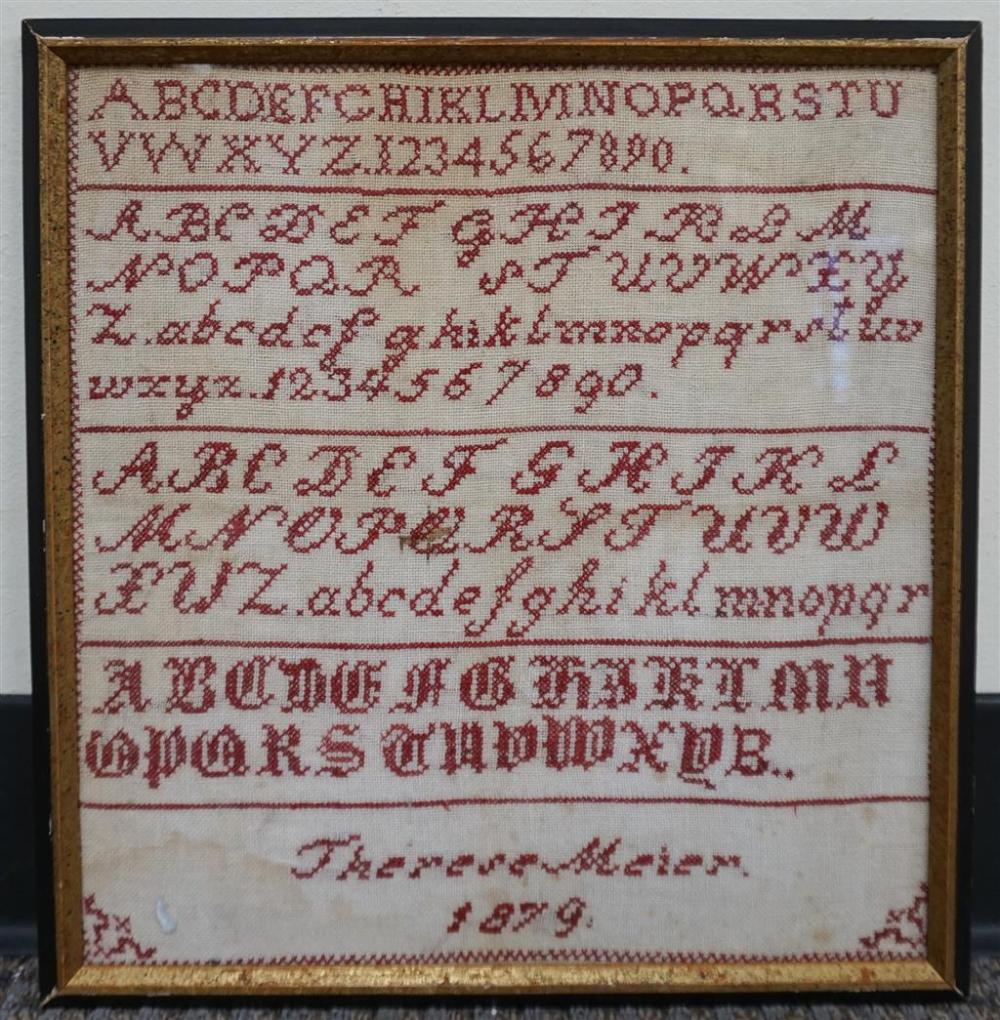 ABCDEFGHIKLMNOPQRSTU
VWXYZ.1234567890.
ABCDEF GHIKLM
NOPQR STUVWXY
Z.abcdefghiklmnopqrstuv
wxyz.1234567890.
ABCDEF GHIKL
MNOPQRSTUVW
XYZ.abcdefghiklmnopqr
ABCDEFGHIKLMN
OPQRSTUVWXYZ..
Therese Meier.
1879.